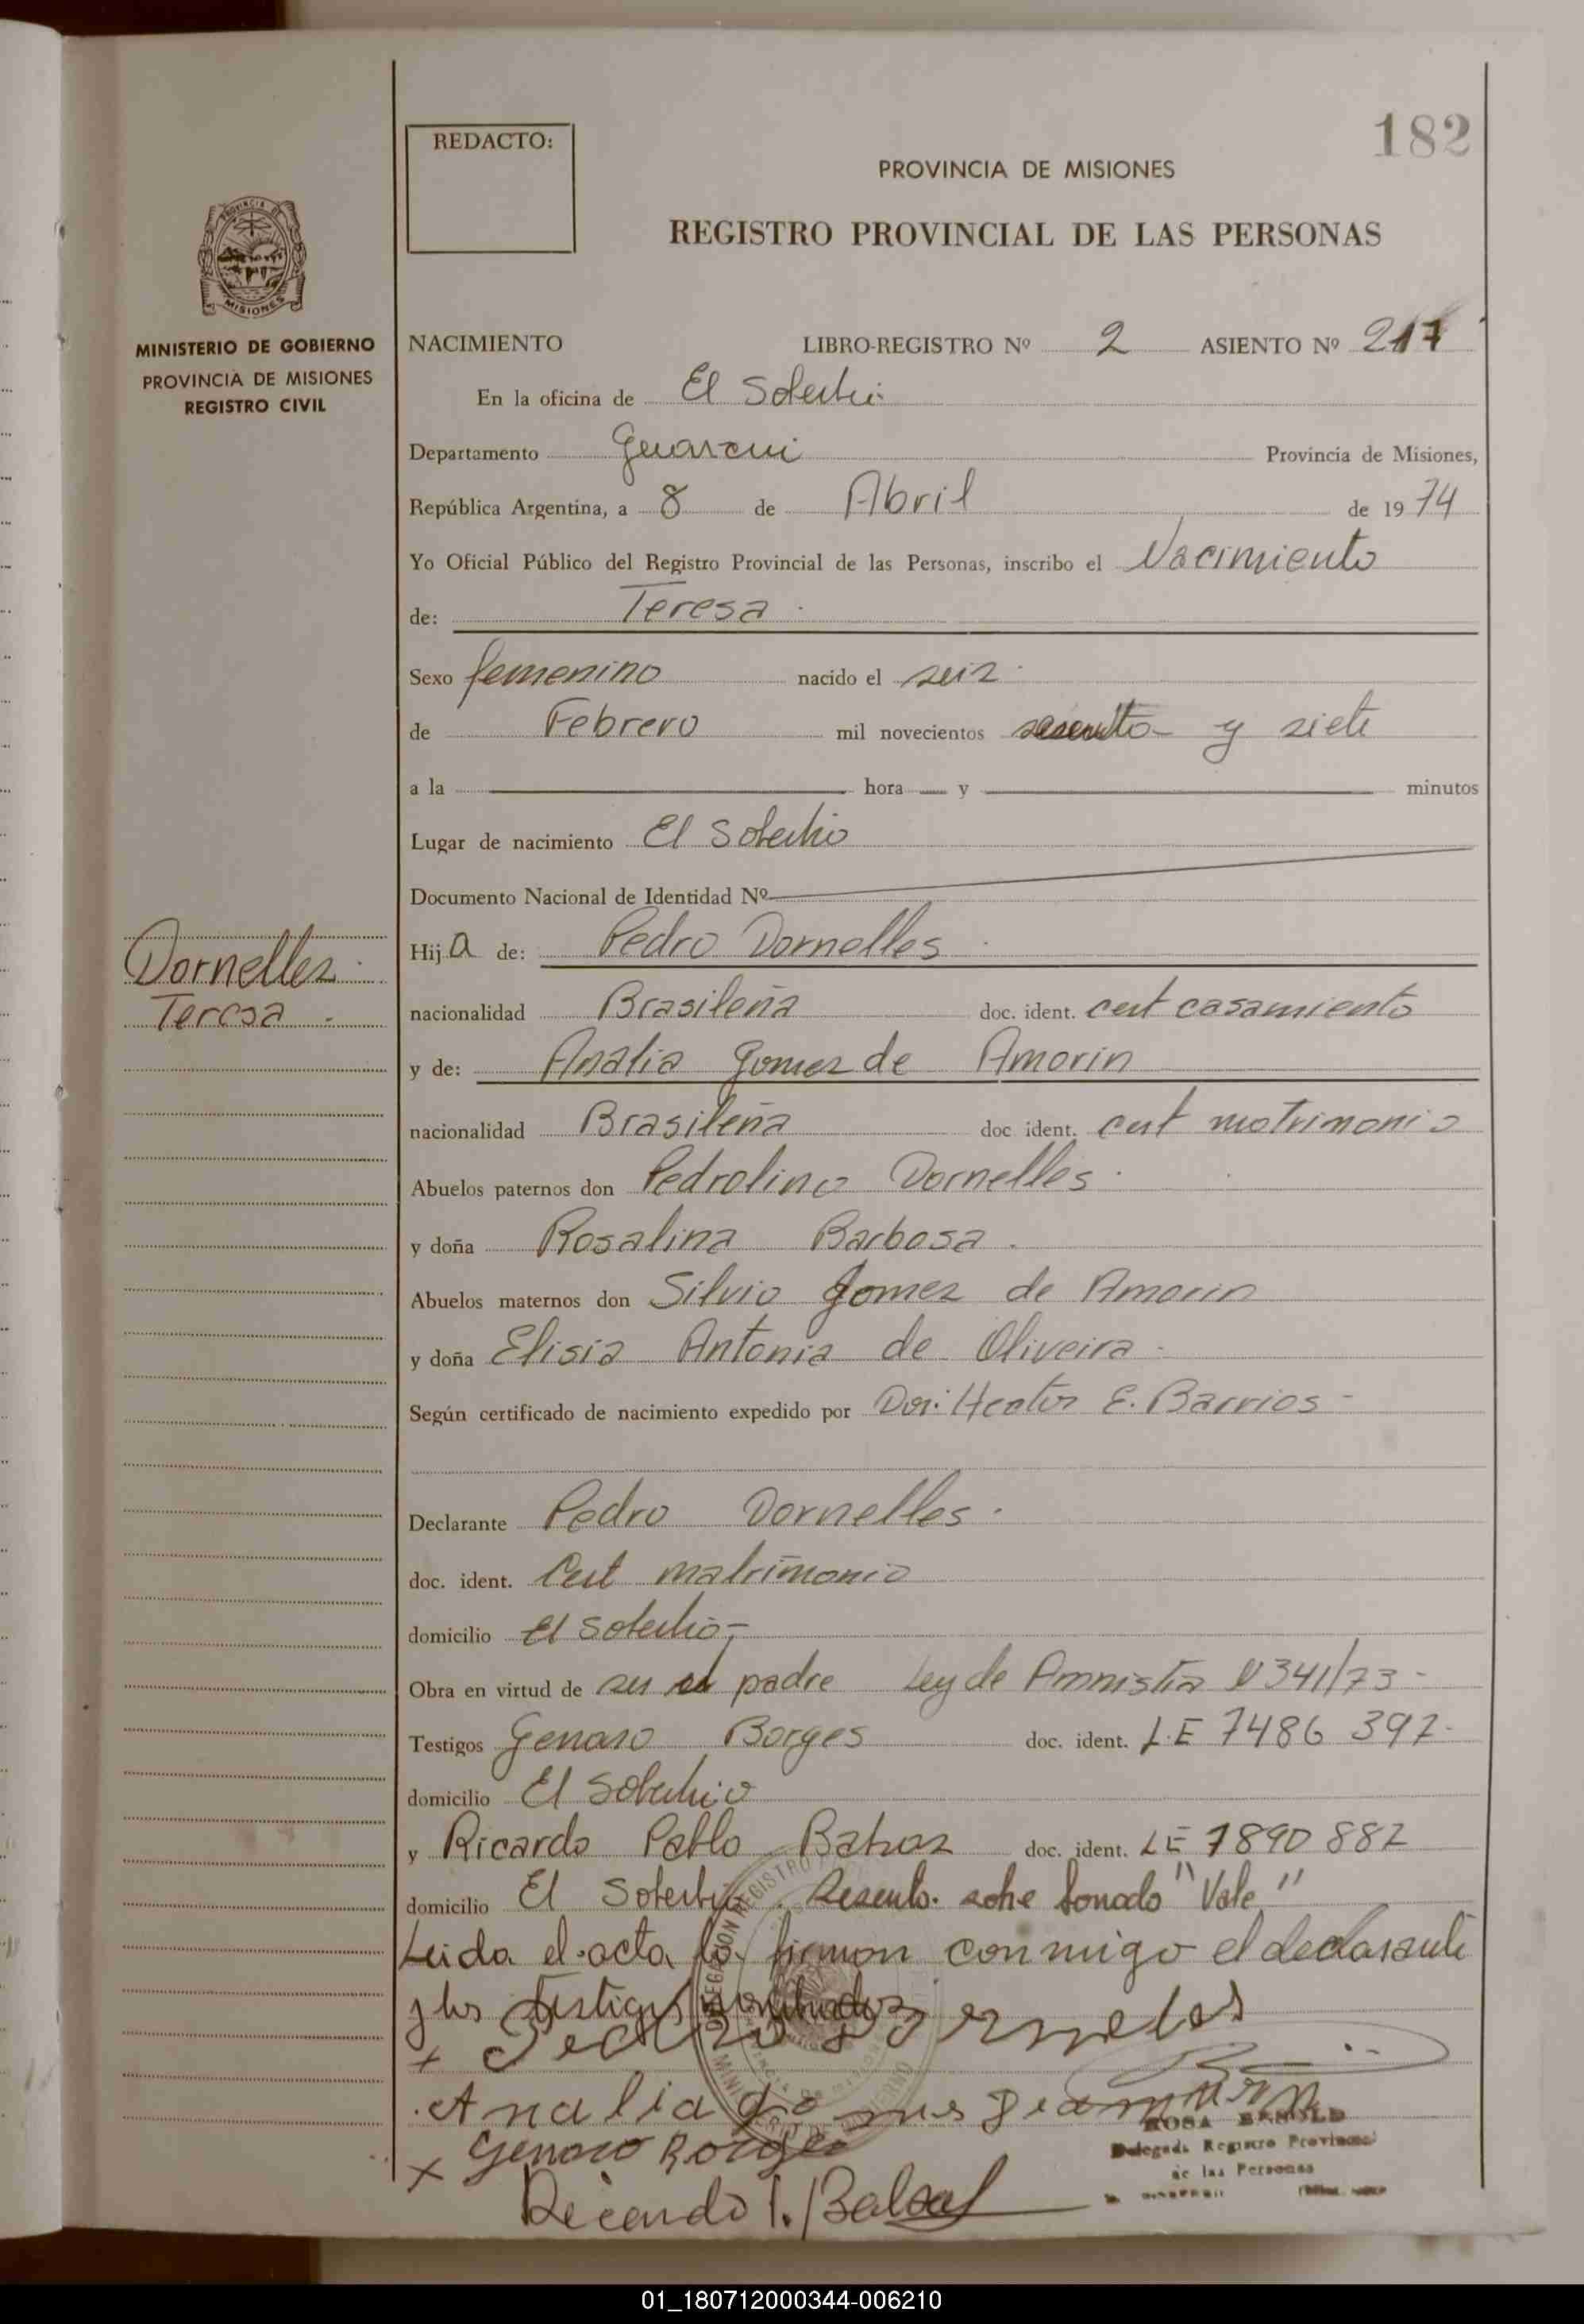 182
REDACTO:
PROVINCIA DE MISIONES
REGISTRO PROVINCIAL DE LAS PERSONAS
PROVINCIA DE
MISIONES
MINISTERIO DE GOBIERNO
PROVINCIA DE MISIONES
REGISTRO CIVIL
NACIMIENTO LIBRO-REGISTRO Nº 2 ASIENTO Nº 217
En la oficina de El Soberbio
Departamento Guarani Provincia de Misiones,
República Argentina, a 8 de Abril de 1974
Yo Oficial Público del Registro Provincial de las Personas, inscribo el Nacimiento
de: Teresa
Sexo femenino nacido el seis
de Febrero mil novecientos sesenta y siete
a la hora y minutos
Lugar de nacimiento El Soberbio
Documento Nacional de Identidad Nº
Dornelles
Teresa
Hija de: Pedro Dornelles
nacionalidad Brasileña doc. ident. cert casamiento
y de: Analia Gomes de Amorin
nacionalidad Brasileña doc ident. cert matrimonio
Abuelos paternos don Pedrolino Dornelles
y doña Rosalina Barbosa
Abuelos maternos don Silvio Gomez de Amorin
y doña Elisia Antonia de Oliveira
Según certificado de nacimiento expedido por Hector E. Barrios
Declarante Pedro Dornelles
doc. ident. Cert matrimonio
domicilio El Soberbio
Obra en virtud de ser el padre Ley de Amnistia N 341/73
Testigos Genaro Borges doc. ident. L.E 7486 397
domicilio El Soberbio
y Ricardo Pablo doc. ident. LE 7890 887
domicilio El Soberbio. Sesenta. sobre borrado "Vale"
Leida el acta la firman conmigo el declarante
y los testigos nombrados
x Pedro Dorneles
Analia gomes
ROSA
Delegada Registro Provincial
de las Personas
x Genaro Borges
Ricardo P.
01_180712000344-006210